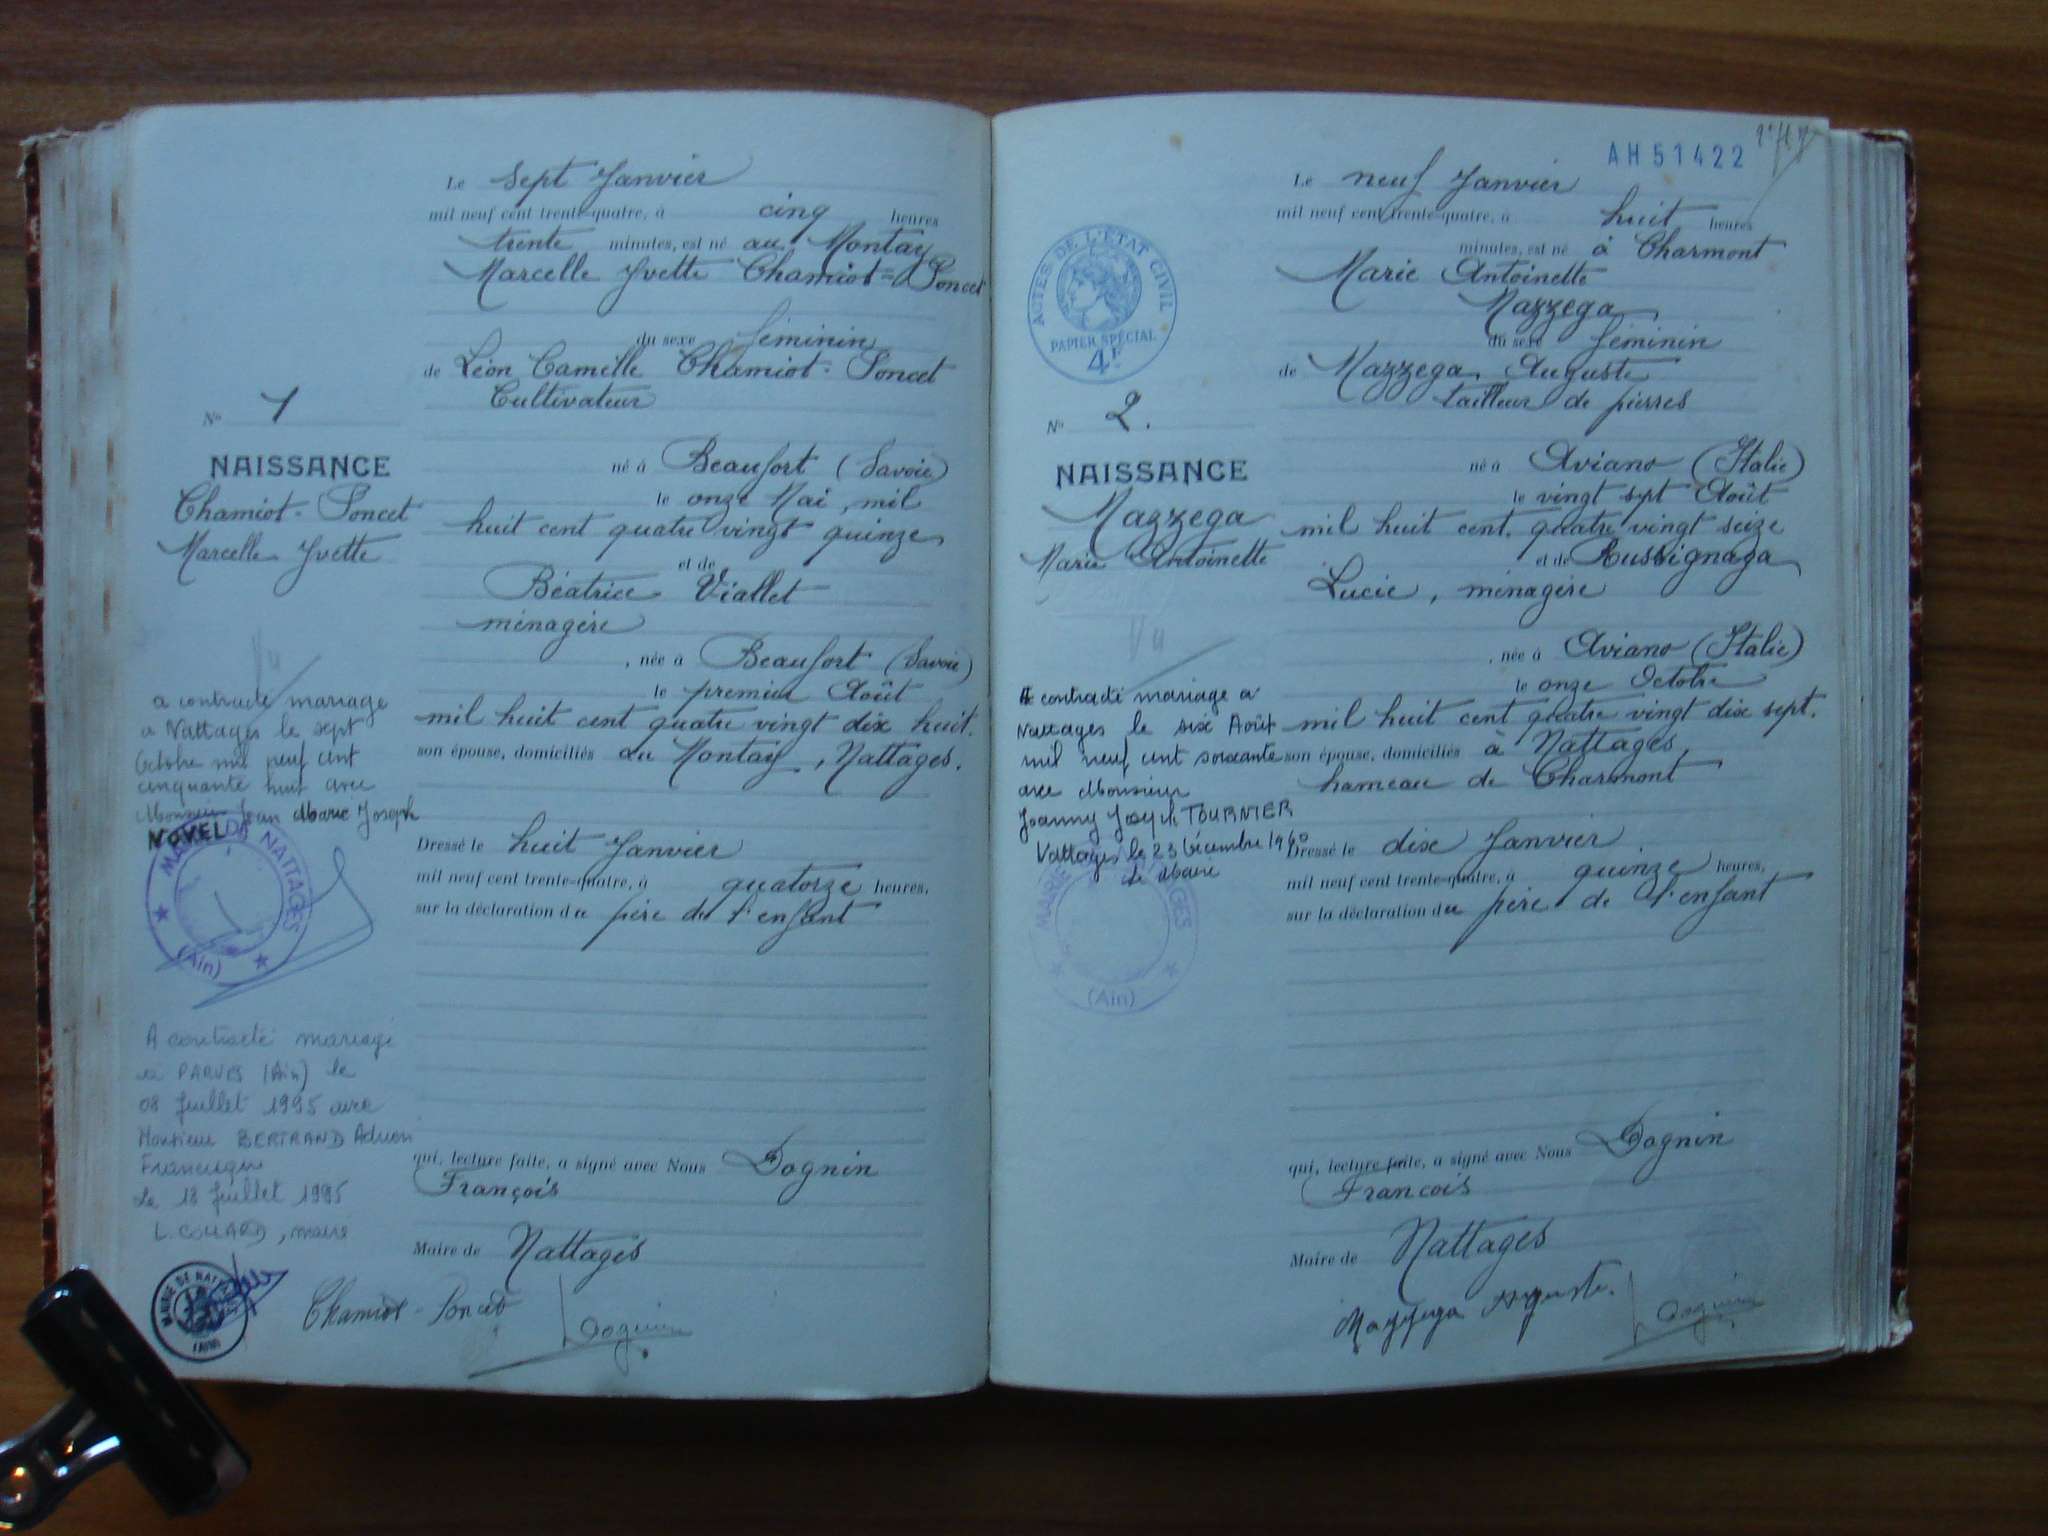 Le sept Janvier
mil neuf cent trente-quatre, à cinq heures
trente minutes, est né au Montay
Marcelle Yvette Chamiot=Poncet
du sexe féminin
de Léon Camille Chamiot-Poncet
Cultivateur
N° 1
NAISSANCE
Chamiot-Poncet
Marcelle Yvette
né à Beaufort (Savoie)
le onze Mai, mil
huit cent quatre vingt quinze
et de
Béatrice Viallet
ménagère
, née à Beaufort (Savoie)
le premier Août
mil huit cent quatre vingt dix huit.
son épouse, domiciliés au Montay, Nattages.
Vu
a contracté mariage
a Nattages le sept
Octobre mil neuf cent
cinquante huit avec
Monsieur Jean Marie Joseph
NOVEL
MAIRIE DE NATTAGES
(Ain)
Dressé le huit Janvier
mil neuf cent trente-quatre, à quatorze heures,
sur la déclaration du père de l'enfant
A contracté mariage
à PARVES (Ain) le
08 Juillet 1995 avec
Monsieur BERTRAND Adrien
Le 18 Juillet 1995
L. COLLARD, maire
qui, lecture faite, a signé avec Nous Dognin
François
Maire de Nattages
Chamiot-Poncet
Dognin
AH51422
Le neuf Janvier
mil neuf cent trente-quatre, à huit heures
minutes, est né à Charmont
Marie Antoinette
Mazzega
du sexe féminin
de Mazzega Auguste
tailleur de pierres
ACTES DE L'ÉTAT CIVIL
PAPIER SPÉCIAL
4F
N° 2.
NAISSANCE
Mazzega
Marie Antoinette
né à Aviano (Italie)
le vingt sept Août
mil huit cent. quatre vingt seize
et de Russignaga
Lucie, ménagère
, née à Aviano (Italie)
le onze Octobre
mil huit cent quatre vingt dix sept.
son épouse, domiciliés à Nattages,
hameau de Charmont
Vu
A contracté mariage a
Nattages le six Août
mil neuf cent soixante
avec Monsieur
Joanny Joseph TOURNIER
Nattages le 23 Décembre 1960
Le Maire
MAIRIE DE NATTAGES
(Ain)
Dressé le dix Janvier
mil neuf cent trente-quatre, à quinze heures,
sur la déclaration du père de l'enfant
qui, lecture faite, a signé avec Nous Dognin
François
Maire de Nattages
Mazzega Auguste.
Dognin